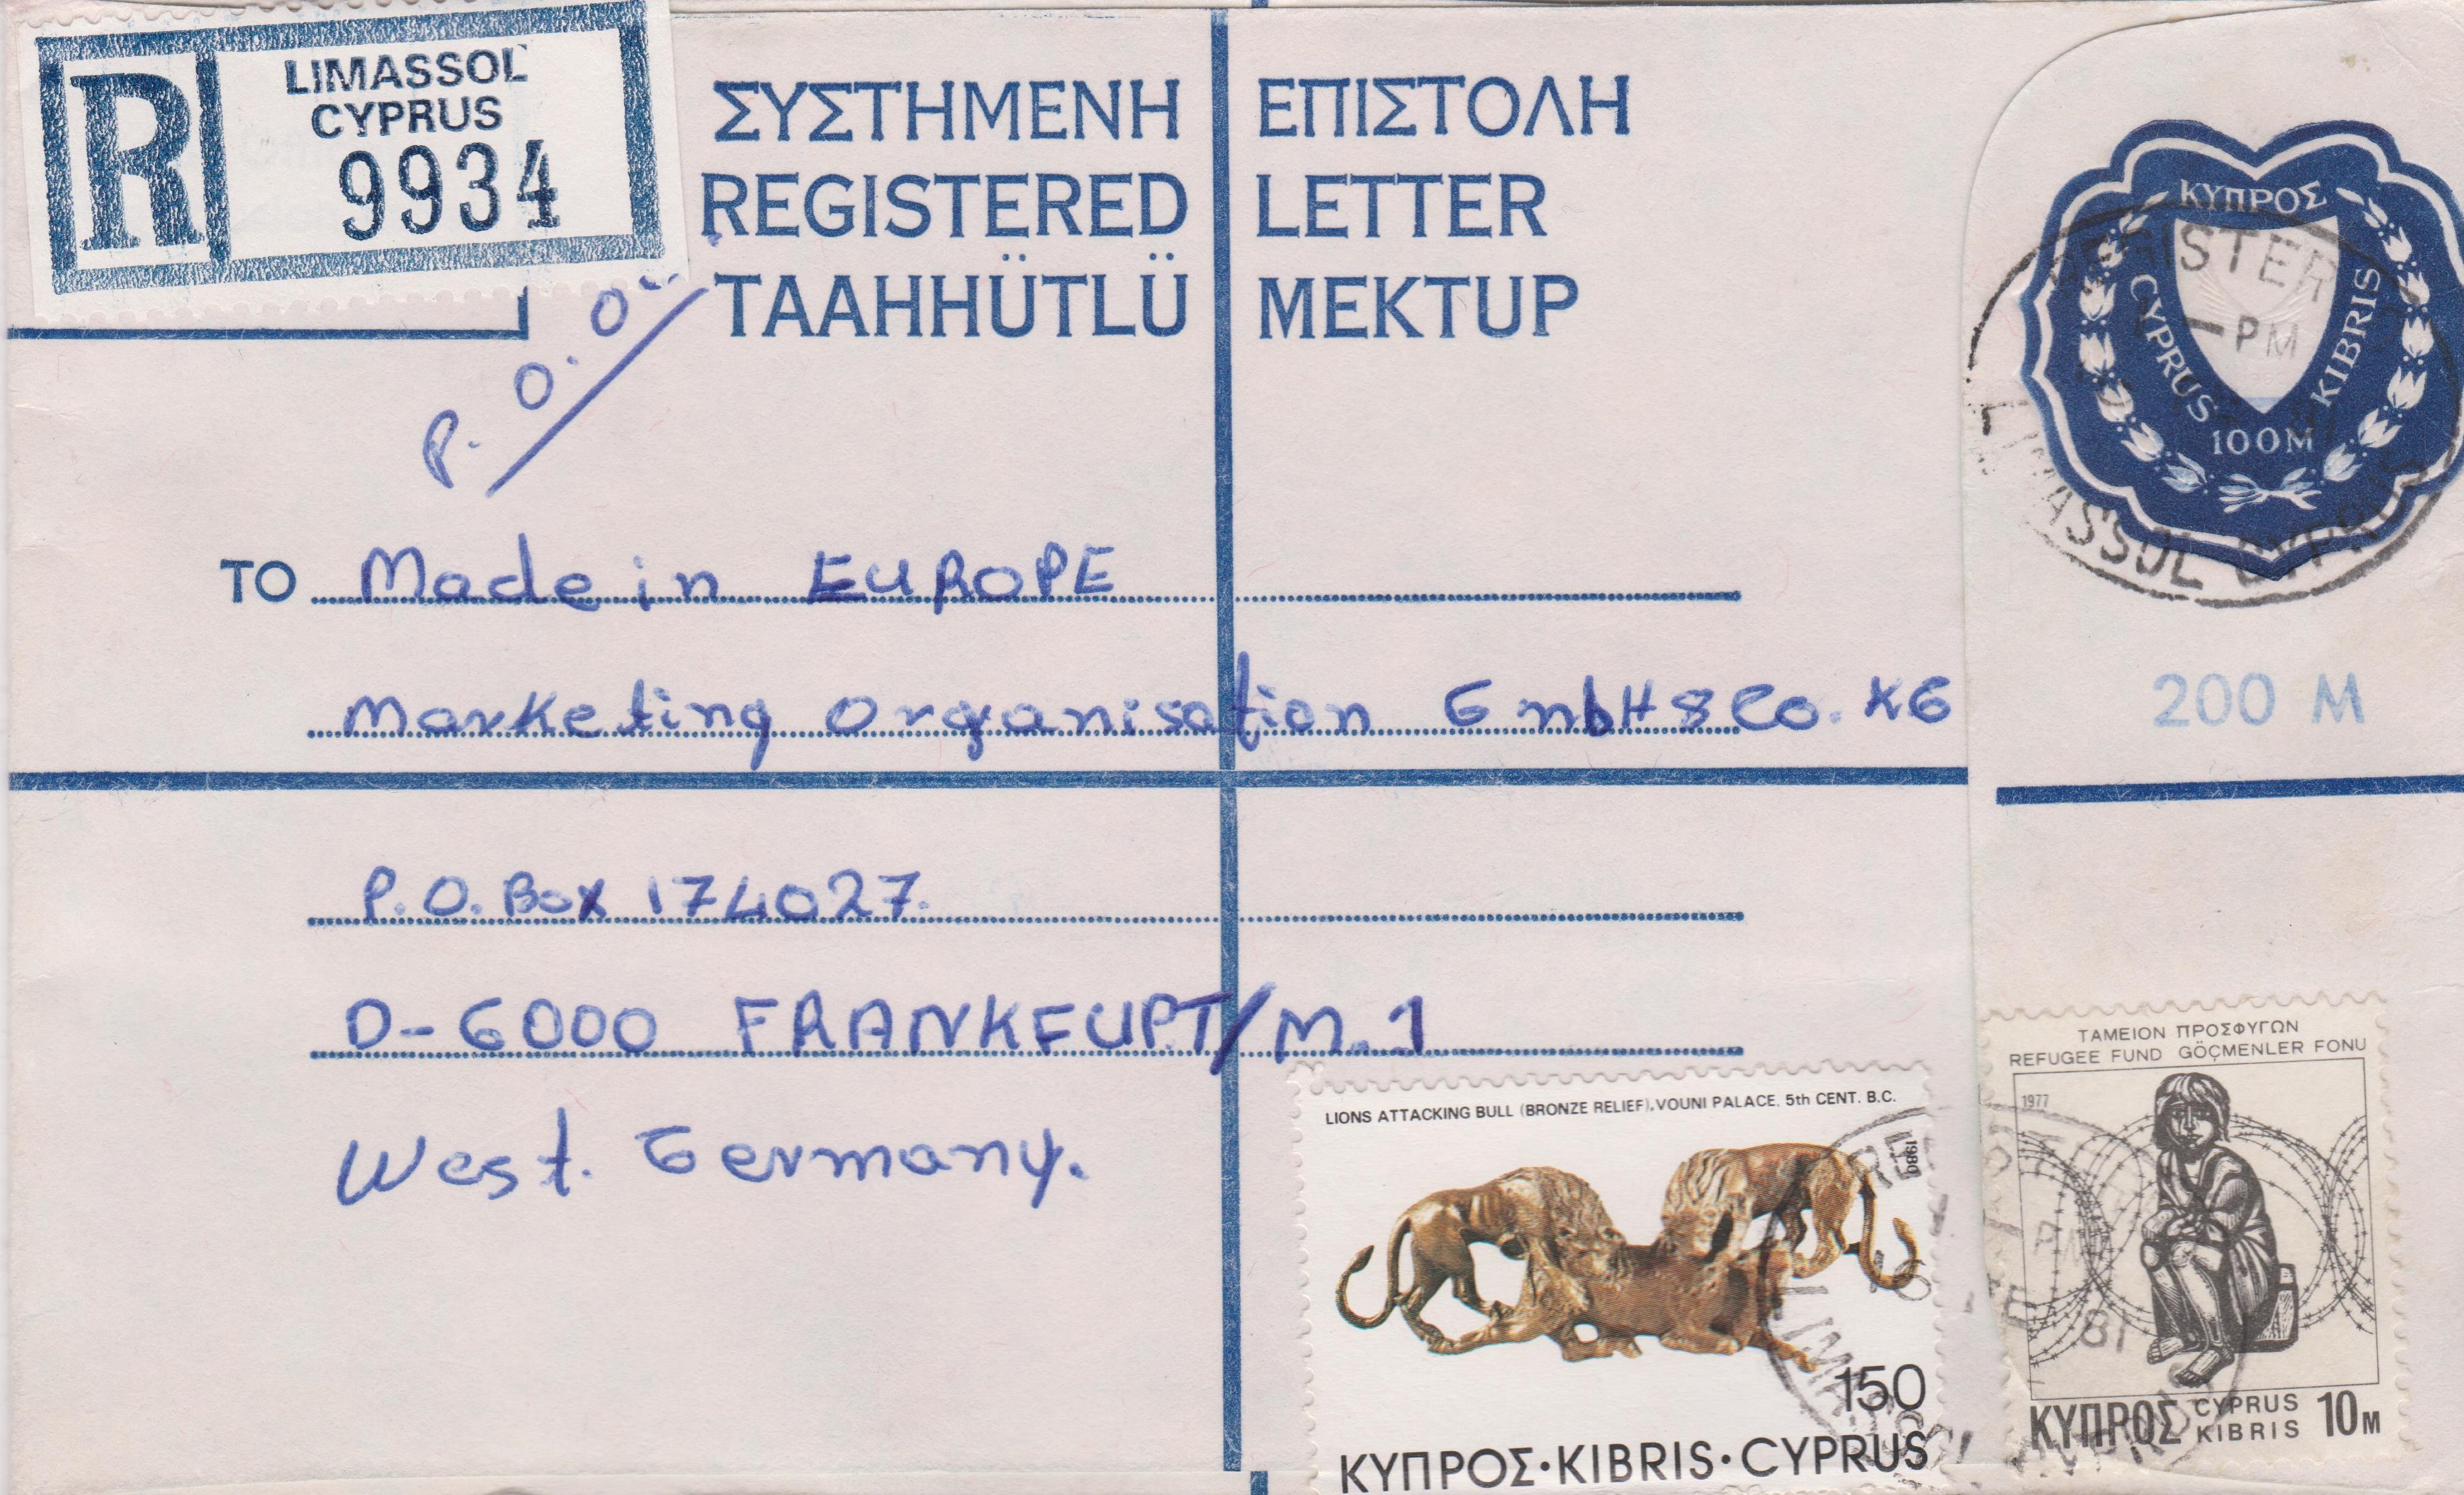 R
LIMASSOL
CYPRUS
9934
ΣΥΣΤΗΜΕΝΗ ΕΠΙΣΤΟΛΗ
REGISTERED LETTER
TAAHHÜTLÜ MEKTUP
P. O. O.
ΚΥΠΡΟΣ
CYPRUS
KIBRIS
100M
PM
LIMASSOL CYPRUS
200 M
TO Made in EUROPE
Marketing organisation GmbH & Co. KG
P.O. Box 174027.
D-6000 FRANKFURT/M.1
West. Germany.
LIONS ATTACKING BULL (BRONZE RELIEF), VOUNI PALACE, 5th CENT. B.C.
1980
150
ΚΥΠΡΟΣ·KIBRIS·CYPRUS
ΤΑΜΕΙΟΝ ΠΡΟΣΦΥΓΩΝ
REFUGEE FUND GÖÇMENLER FONU
1977
81
ΚΥΠΡΟΣ CYPRUS KIBRIS 10M